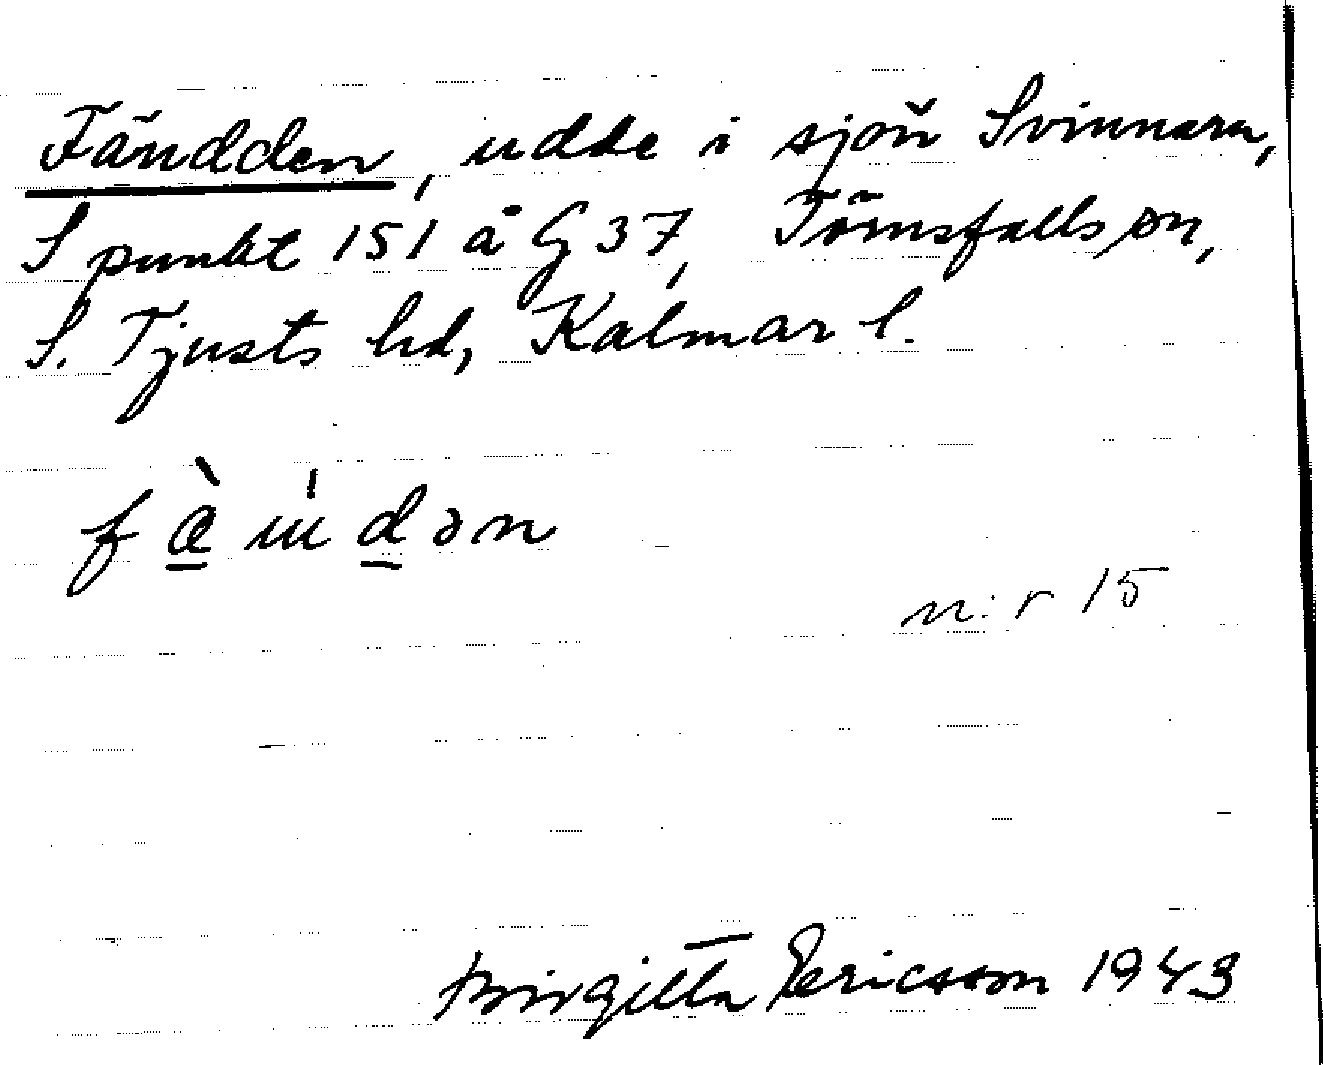 Fäudden, udde i sjön Svinnaren,
S punkt 151 å G 37, Törnsfalls sn,
S. Tjusts hd, Kalmar l.
f æ̀ u̍ d ə n
n:r 15
Birgitta Ericsson 1943